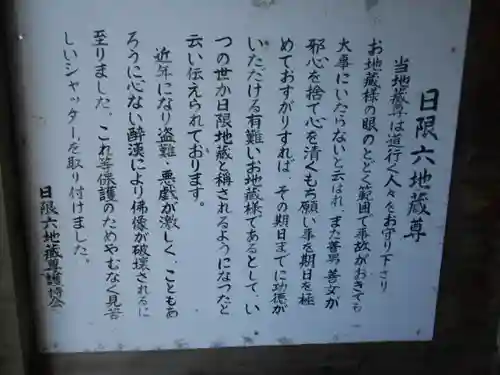 日限六地蔵尊
当地蔵尊は道行く人々をお守り下さり
お地蔵様の眼のとどく範囲で事故がおきても
大事にいたらないと云はれ、また善男善女が
邪心を捨て心を清くもち願い事を期日を極
めておすがりすれば、その期日までに功徳が
いただける有難いお地蔵様であるとして、い
つの世か日限地蔵と称されるようになつたと
云い伝えられております。
近年になり盗難、悪戯が激しく、こともあ
ろうに心ない酔漢により佛像が破壊されるに
至りました、これ等保護のためやむなく見苦
しいシャッターを取り付けました。
日限六地蔵尊護持会